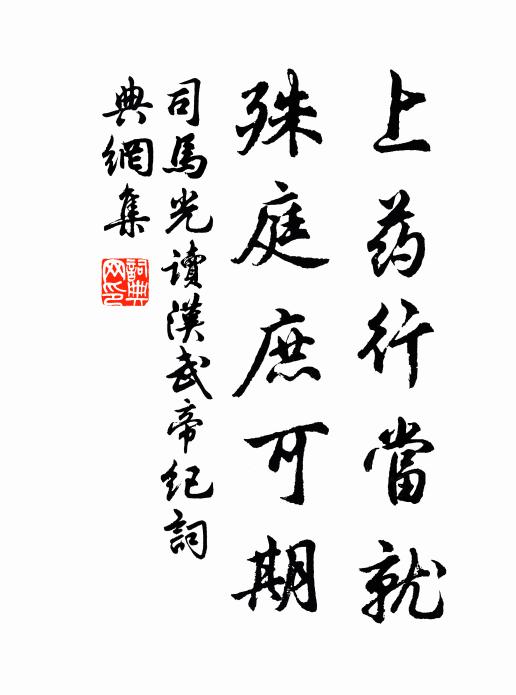 上药行當就
殊庭庶可期
司馬光讀漢武帝纪詞
典網集
詞典
网印